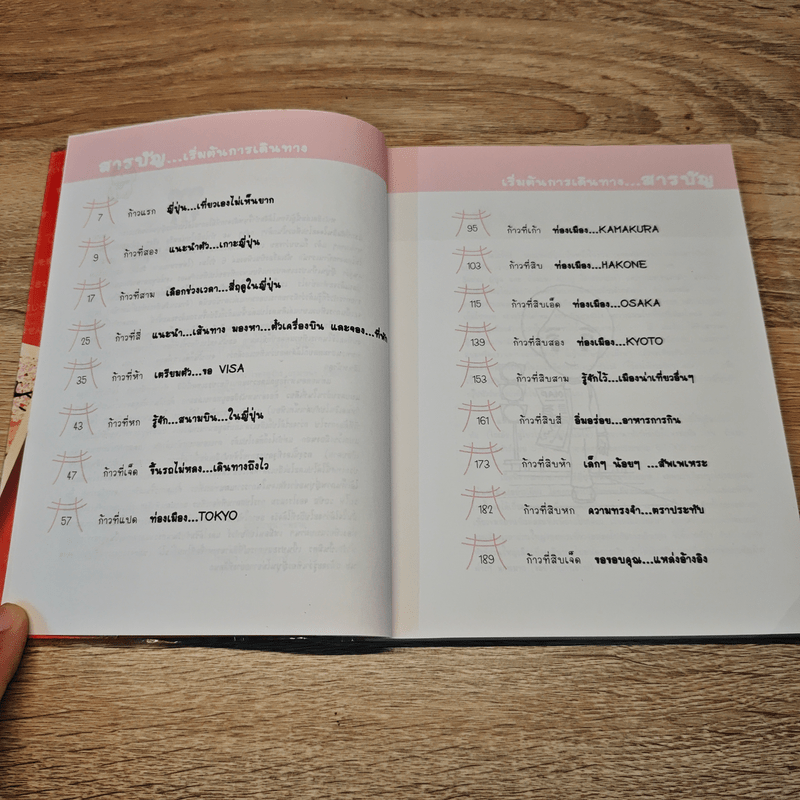 สารบัญ...เริ่มต้นการเดินทาง
7 ก้าวแรก ญี่ปุ่น...เที่ยวเองไม่เห็นยาก
9 ก้าวที่สอง แนะนำตัว...เกาะญี่ปุ่น
17 ก้าวที่สาม เลือกช่วงเวลา...สี่ฤดูในญี่ปุ่น
25 ก้าวที่สี่ แนะนำ...เส้นทาง มองหา...ตั๋วเครื่องบิน และจอง...ที่พัก
35 ก้าวที่ห้า เตรียมตัว...ขอ VISA
43 ก้าวที่หก รู้จัก...สนามบิน...ในญี่ปุ่น
47 ก้าวที่เจ็ด ขึ้นรถไม่หลง...เดินทางถึงไว
57 ก้าวที่แปด ท่องเมือง...TOKYO
เริ่มต้นการเดินทาง...สารบัญ
95 ก้าวที่เก้า ท่องเมือง...KAMAKURA
103 ก้าวที่สิบ ท่องเมือง...HAKONE
115 ก้าวที่สิบเอ็ด ท่องเมือง...OSAKA
139 ก้าวที่สิบสอง ท่องเมือง...KYOTO
153 ก้าวที่สิบสาม รู้จักไว้...เมืองน่าเที่ยวอื่นๆ
161 ก้าวที่สิบสี่ อิ่มอร่อย...อาหารการกิน
173 ก้าวที่สิบห้า เล็กๆ น้อยๆ ...สัพเพเหระ
182 ก้าวที่สิบหก ความทรงจำ...ตราประทับ
189 ก้าวที่สิบเจ็ด ขอขอบคุณ...แหล่งอ้างอิง